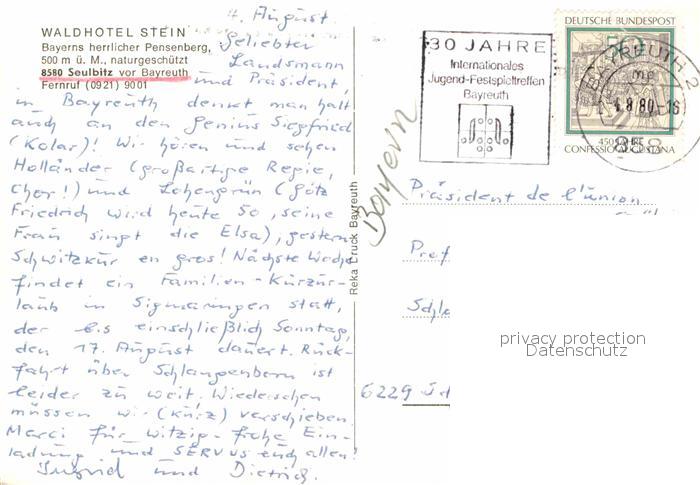 4. August.
WALDHOTEL STEIN
Bayerns herrlicher Pensenberg,
500 m ü. M., naturgeschützt
8580 Seulbitz vor Bayreuth
Fernruf (0921) 9001
Geliebter
Landsmann
und Präsident,
in Bayreuth denkt man halt
auch an den Genius Siegfried
(Kolar)! Wir hören und sehen
Holländer (großartige Regie,
Chor!) und Lohengrin (Götz
Friedrich wird heute 50, seine
Frau singt die Elsa), gestern
Schwitzkur en gros! Nächste Woche
findet ein Familien-Kurzur-
laub in Sigmaringen statt,
der bis einschließlich Sonntag,
den 17. August dauert. Rück-
fahrt über Schlangenbern ist
leider zu weit. Wiedersehen
müssen wir (kurz) verschieben.
Merci für witzig-frohe Ein-
ladung und SERVUS euch allen!
Ingrid und Dietrich.
Reka Druck Bayreuth
Bayern
30 JAHRE
Internationales
Jugend-Festspieltreffen
Bayreuth
DEUTSCHE BUNDESPOST
50
450 JAHRE
CONFESSIO AUGUSTANA
BAYREUTH 2
-4.8.80-16
Präsident de l'union
Prof
Schla
6229 Sch
privacy protection
Datenschutz